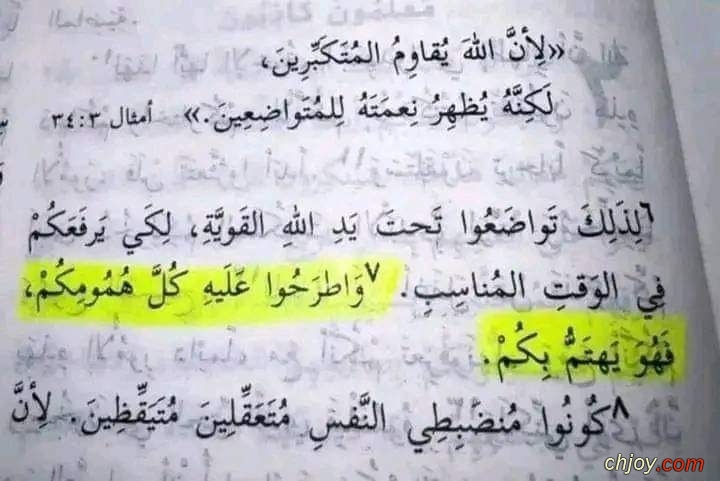 «لِأنَّ اللهَ يُقاوِمُ المُتَكَبِّرِينَ،
لَكِنَّهُ يُظهِرُ نِعمَتَهُ لِلمُتَواضِعِينَ.» أمثال ٣:‏٣٤
٦لِذَلِكَ تَواضَعُوا تَحتَ يَدِ اللهِ القَوِيَّةِ، لِكَي يَرفَعَكُمْ
فِي الوَقتِ المُناسِبِ. ٧وَاطرَحُوا عَلَيهِ كُلَّ هُمُومِكُمْ،
فَهُوَ يَهتَمُّ بِكُمْ.
٨كُونُوا مُنضَبِطِي النَّفسِ مُتَعَقِّلِينَ مُتَيَقِّظِينَ. لِأنَّ
chjoy.com